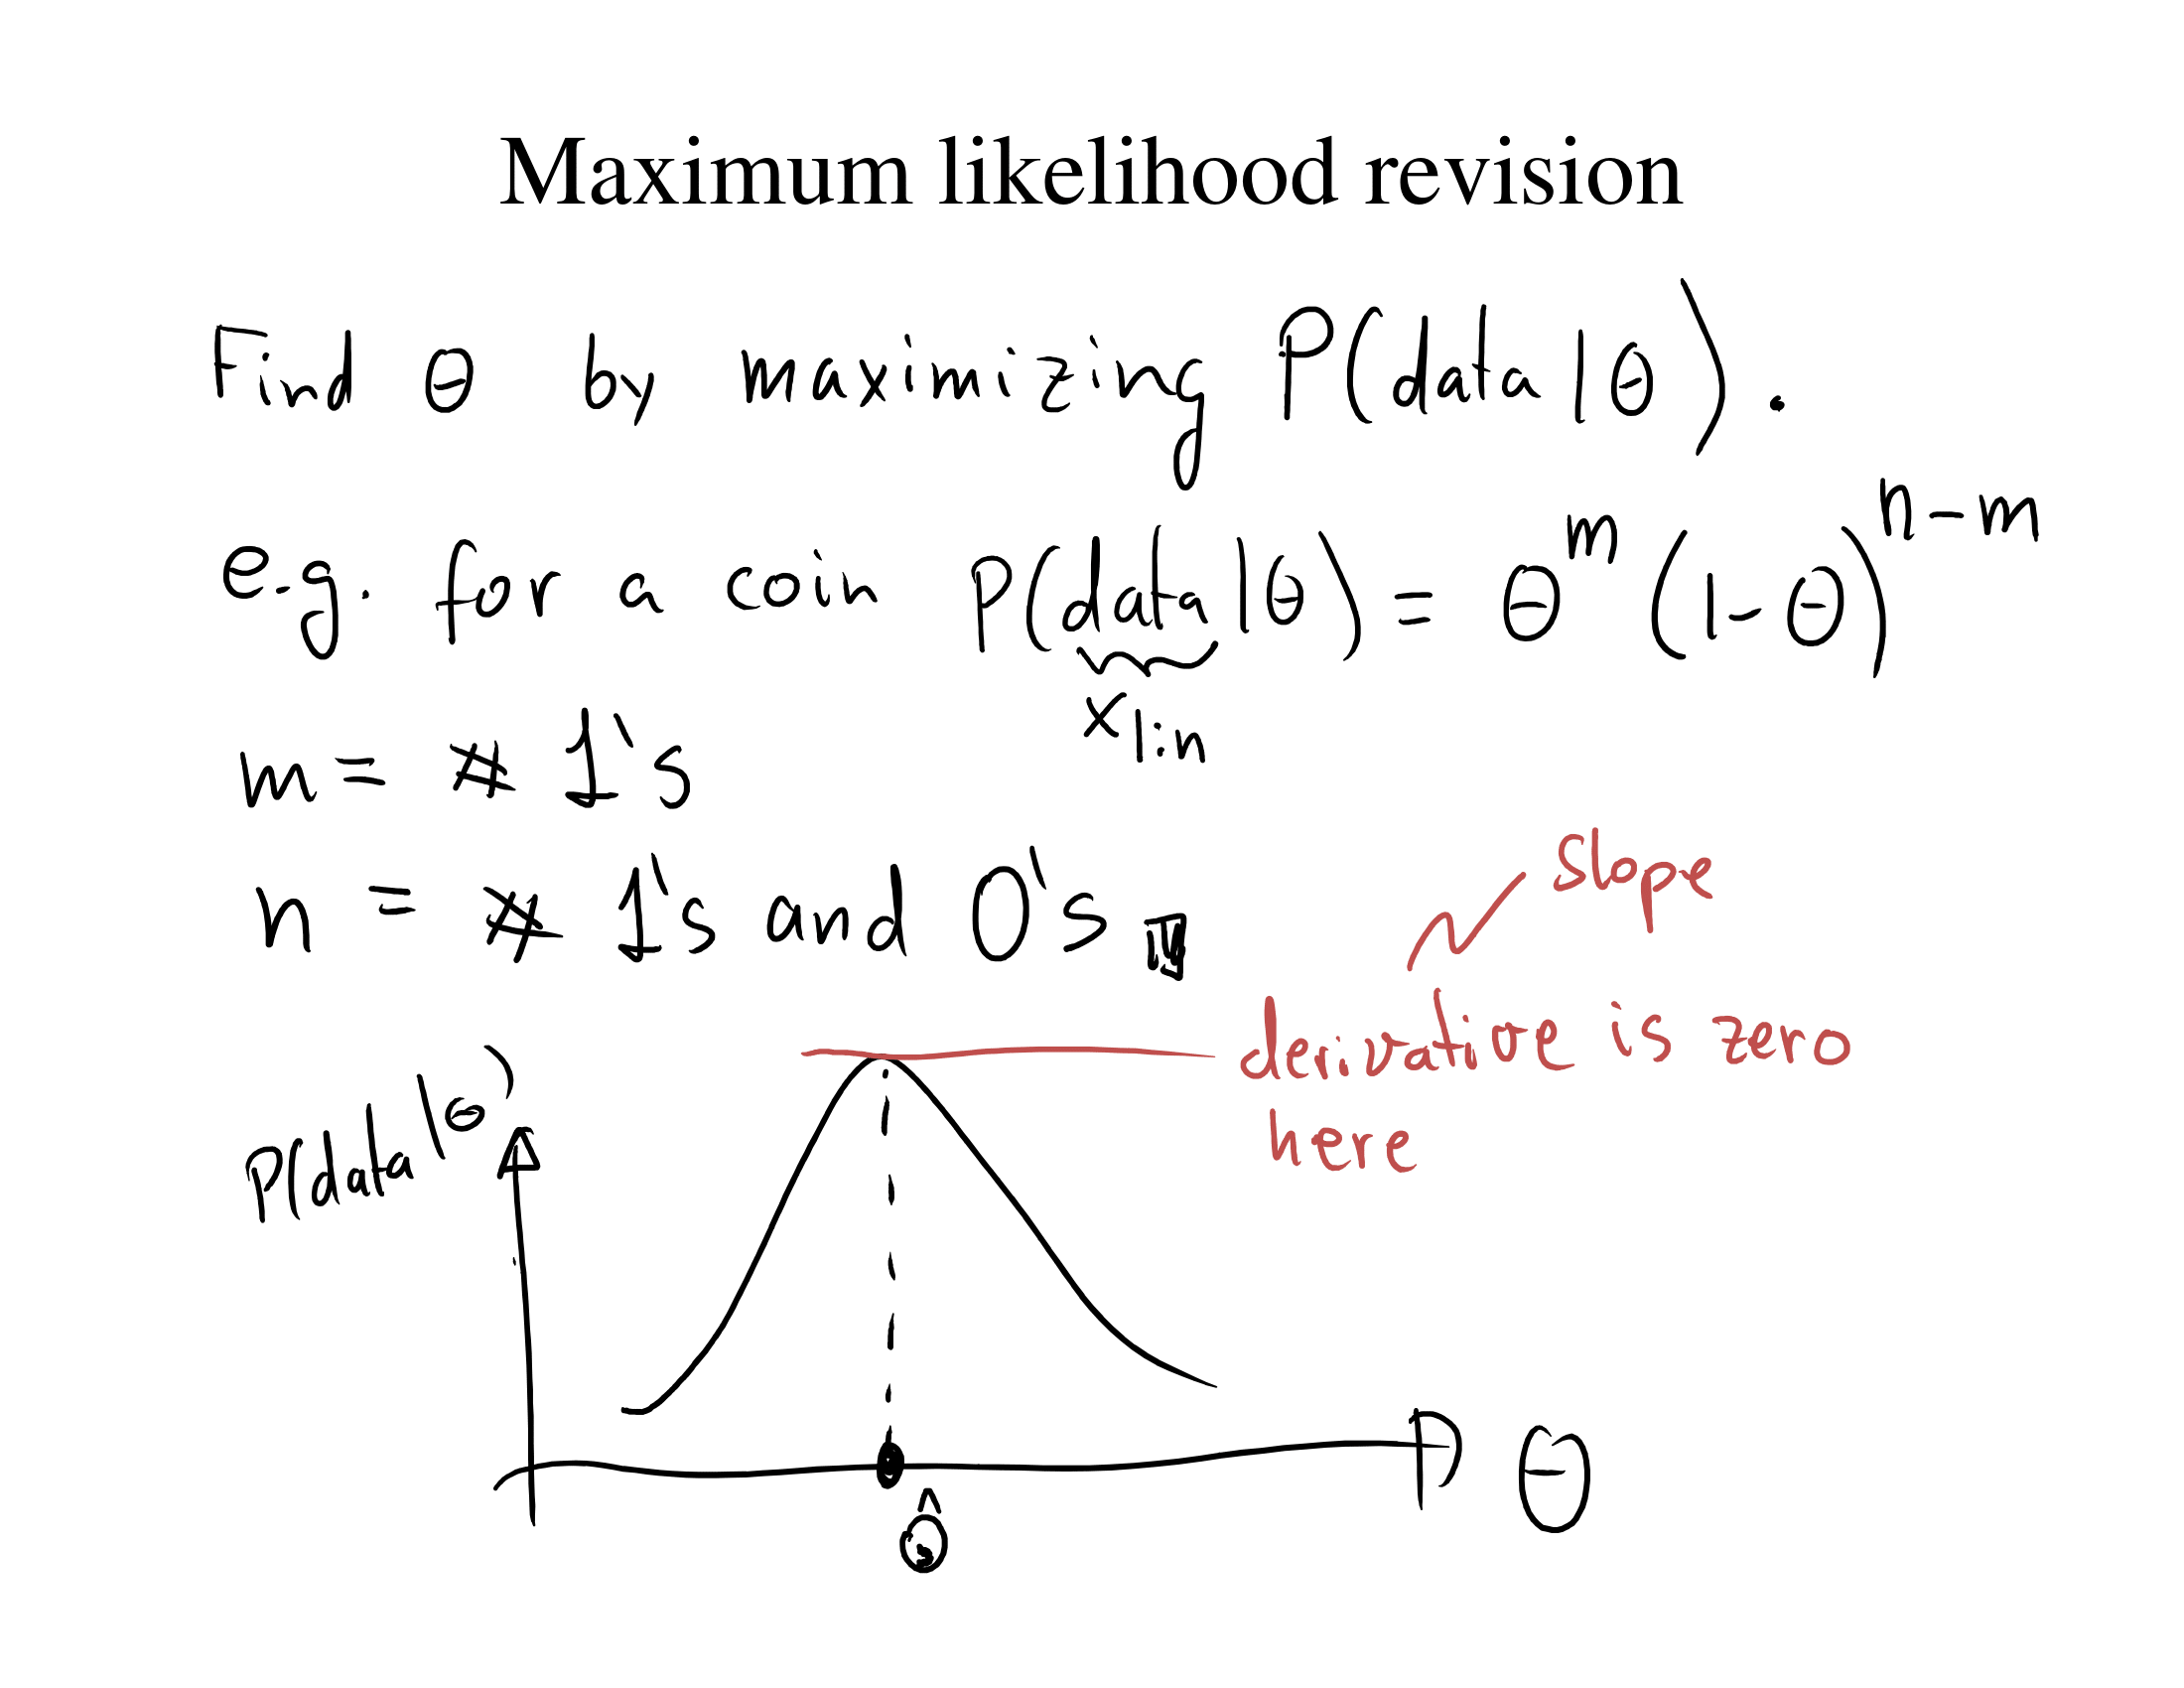 Maximum likelihood revision
Find θ by maximizing P(data|θ).
e.g. for a coin P(data|θ) = θ^m (1-θ)^{n-m}
x_{1:n}
m = # 1's
n = # 1's and 0's
slope
derivative is zero
here
P(data|θ)
θ
θ̂